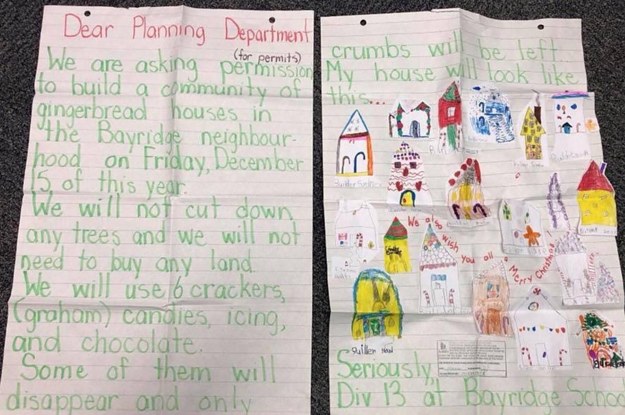 Dear Planning Department
(for permits)
We are asking permission
to build a community of
gingerbread houses in
the Bayridge neighbour-
hood on Friday, December
15 of this year.
We will not cut down
any trees and we will not
need to buy any land.
We will use 6 crackers,
(graham) candies, icing,
and chocolate.
Some of them will
disappear and only
crumbs will be left.
My house will look like
this
We also wish you all a Merry Christmas
Seriously,
Div 13 at Bayridge School